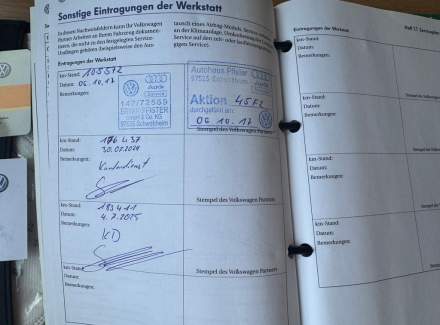 Sonstige Eintragungen der Werkstatt
In diesen Nachweisfeldern kann Ihr Volkswagen
Partner Arbeiten an Ihrem Fahrzeug dokumen-
tieren, die nicht zu den festgelegten Service-
Umfängen gehören (beispielsweise den Aus-
tausch eines Airbag-Moduls, Service
an der Klimaanlage,
Service auf den zeit- oder laufleistungs
gigen Service).
Eintragungen der Werkstatt
km-Stand: 105572
Datum: 06.10.17
Bemerkungen:
Audi
Service
147/72559
ERWIN PFISTER
GmbH & Co. KG
97525 Schwebheim
Autohaus Pfister
97525 Schwebheim
Aktion 45F2
durchgeführt am:
06.10.17
Stempel des Volkswagen Partners
km-Stand: 176 437
Datum: 30.07.2024
Bemerkungen:
Kundendienst
Stempel des Volkswagen Partners
km-Stand: 183411
Datum: 4.7.2025
Bemerkungen:
KD
Stempel des Volkswagen Partners
km-Stand:
Datum:
Bemerkungen:
Eintragungen der Werkstatt
km-Stand:
Datum:
Bemerkungen:
km-Stand:
Datum:
Bemerkungen:
km-Stand:
Datum:
Bemerkungen:
km-Stand:
Datum:
Bemerkungen: